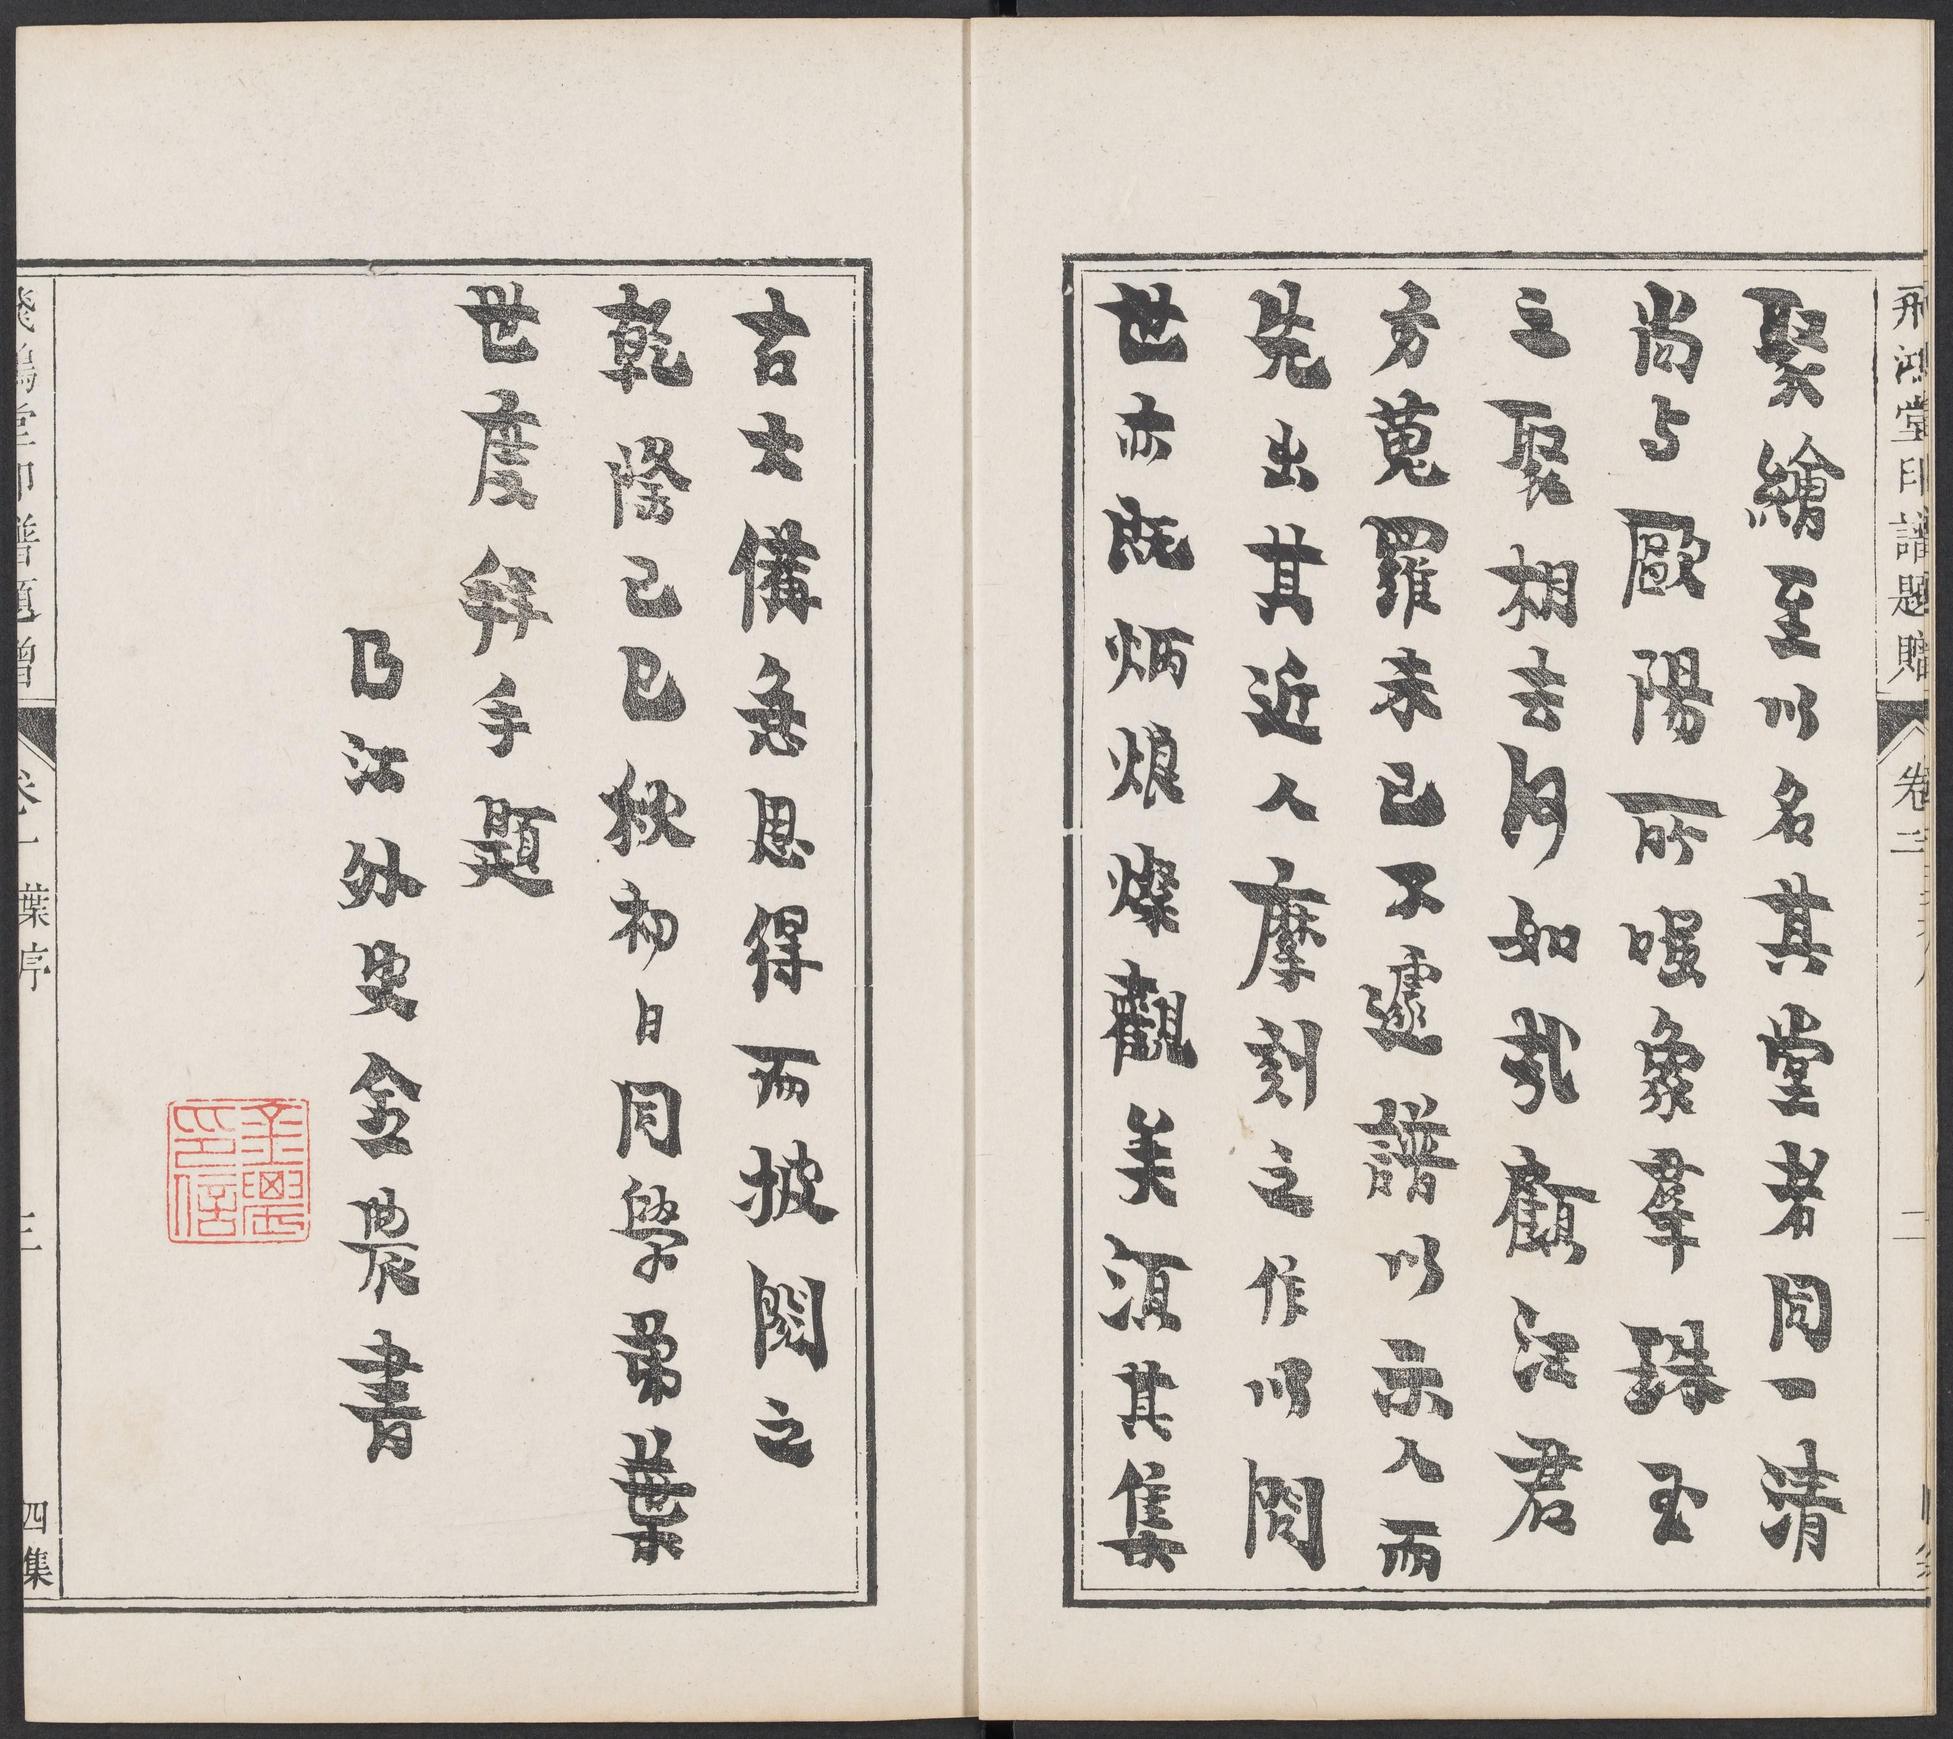 飛鴻堂印譜題贈
聚繪至以名其堂者同一清
尚与歐陽所嗤象犀珠玉
之聚相去何如哉顧汪君
方蒐羅未已不遽譜以示人而
先出其近人摩刻之作以問
世亦既炳烺燦觀美須其集
古大備無思得而披閱之
乾隆己巳秋初日同學弟葉
世度拜手題
己江外史金農書
飛鴻堂印譜題贈
卷一
葉序
三
四集